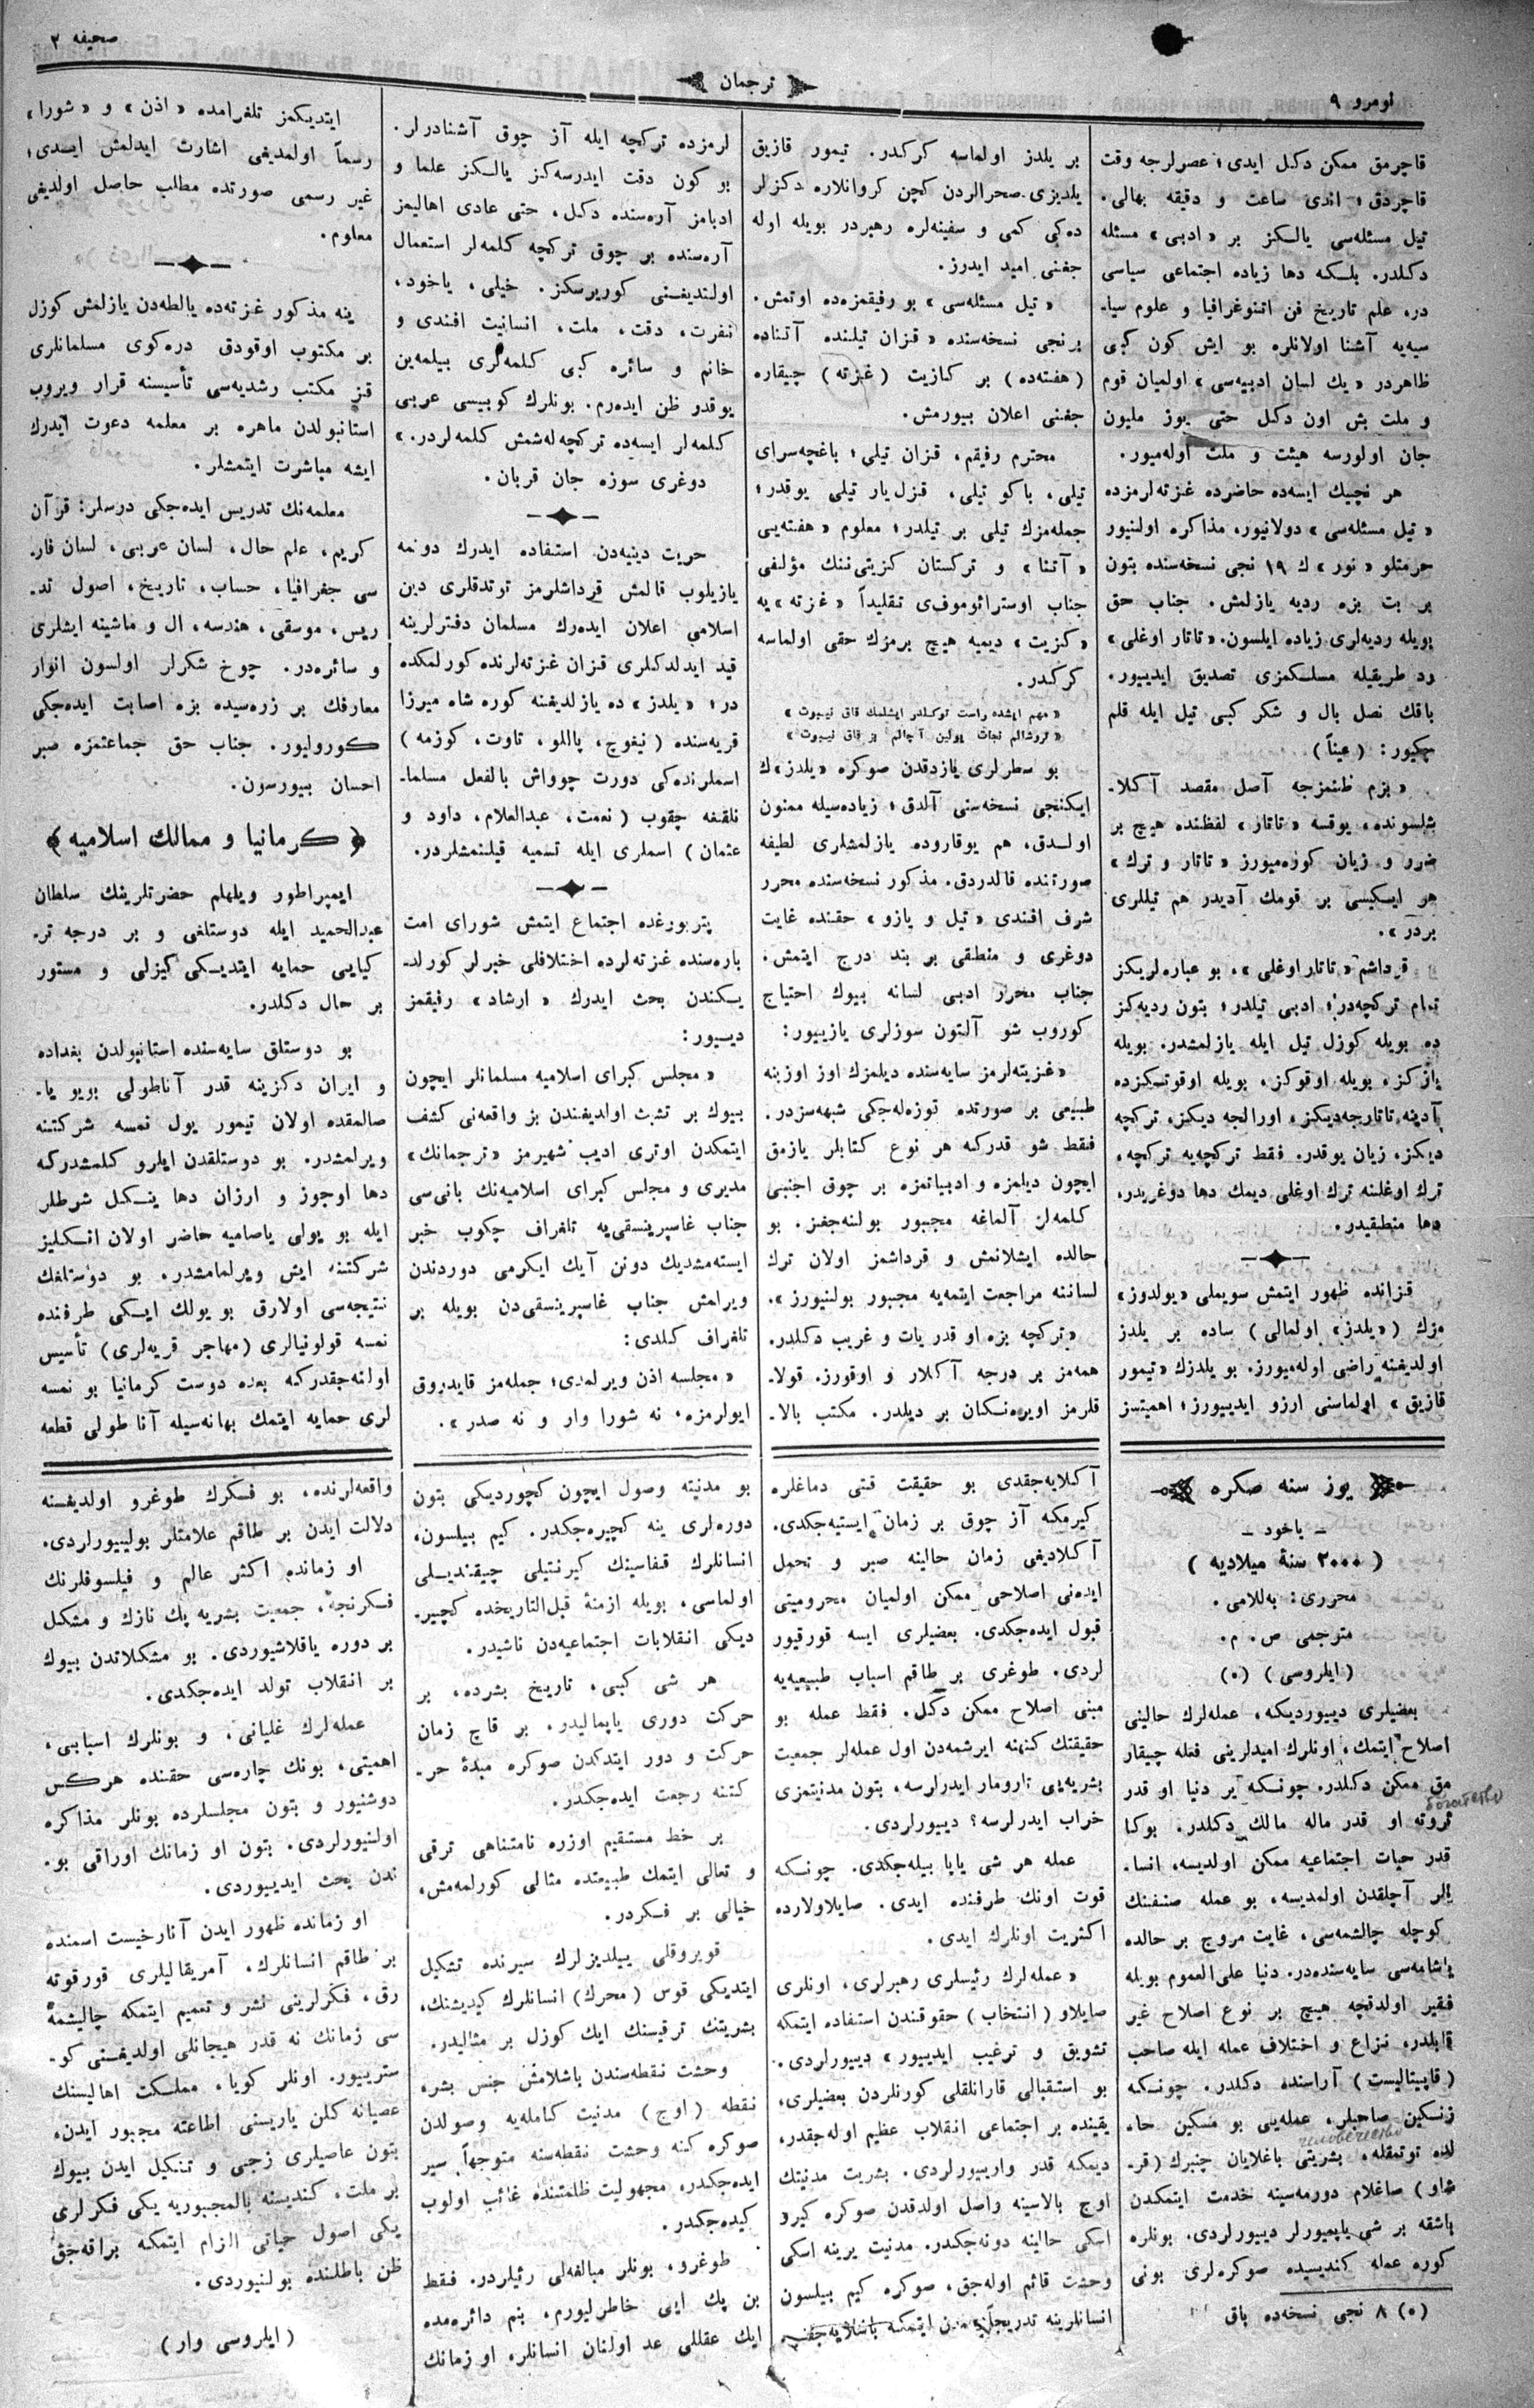 نومرو ۹
ترجمان
صحيفه ۲
قاچرمق ممكن دكل ايدى؛ عصرلرجه وقت
قاچردق؛ اندى ساعت و دقيقه بهالى.
تيل مسئله‌سى يالكز بر «ادبى» مسئله
دكلدر. بلكه دها زياده اجتماعى سياسى
در، علم تاريخ فن اتنوغرافيا و علوم سيا-
سيه‌يه آشنا اولانلره بو ايش كون كبى
ظاهردر «يك لسان ادبيه‌سى» اولميان قوم
و ملت بش اون دكل حتى يوز مليون
جان اولورسه هيئت و ملت اوله‌ميور.
هر نچيك ايسه‌ده حاضرده غزته‌لرمزده
«تيل مسئله‌سى» دولانيور، مذاكره اولنيور
حرمتلو «نور» ك ۱۹ نجى نسخه‌سنده بتون
بر بت بزه رديه يازلمش. جناب حق
بويله رديه‌لرى زياده ايلسون. «تاتار اوغلى»
رد طريقيله مسلكمزى تصديق ايدييور.
باقك نصل بال و شكر كبى تيل ايله قلم
چكيور: (عيناً)
«بزم ظنمزجه آصل مقصد آكلا-
شلسونده، يوقسه «تاتار» لفظنده هيچ بر
ضرر و زيان كوره‌ميورز «تاتار و ترك»
هر ايكيسى بر قومك آديدر هم تيللرى
بردر».
قرداشم «تاتار اوغلى»، بو عباره‌لريكز
تمام تركچه‌در؛ ادبى تيلدر؛ بتون رديه‌كز
ده بويله كوزل تيل ايله يازلمشدر. بويله
يازكز، بويله اوقوكز، بويله اوقوتكزده
آدينه تاتارجه ديكز، اورالجه ديكز، تركچه
ديكز، زيان يوقدر. فقط تركچه‌يه تركچه،
ترك اوغلنه ترك اوغلى ديمك دها دوغريدر،
دها منطقيدر.
قزانده ظهور ايتمش سويملى «يولدوز»
مزك («يلدز» اولمالى) ساده بر يلدز
اولديغنه راضى اوله‌ميورز. بو يلدزك «تيمور
قازيق» اولماسنى ارزو ايدييورز؛ اهميتسز
بر يلدز اولماسه كركدر. تيمور قازيق
يلديزى صحرالردن كچن كروانلاره دكزلر
ده‌كى كمى و سفينه‌لره رهبردر بويله اوله
جغنى اميد ايدرز.
«تيل مسئله‌سى» بو رفيقمزه‌ده اوتمش.
برنجى نسخه‌سنده «قزان تيلنده آتناده
(هفته‌ده) بر كازيت (غزته) چيقاره
جغنى اعلان بيورمش.
محترم رفيقم، قزان تيلى؛ باغچه‌سراى
تيلى، باكو تيلى، قزل‌يار تيلى يوقدر؛
جمله‌مزك تيلى بر تيلدر؛ معلوم «هفته‌يى
«آتنا» و تركستان كزيتى‌ننك مؤلفى
جناب اوستراثوموف‌ى تقليداً «غزته» يه
«كزيت» ديميه هيچ برمزك حقى اولماسه
كركدر.
بو سطرلرى يازدقدن صوكره «يلدز» ك
ايكنجى نسخه‌سنى آلدق؛ زياده‌سيله ممنون
اولدق، هم يوقاروده يازلمشلرى لطيفه
صورتنده قالدردق. مذكور نسخه‌سنده محرر
شرف افندى «تيل و يازو» حقنده غايت
دوغرى و منطقى بر بند درج ايتمش.
جناب محرر ادبى لسانه بيوك احتياج
كوروب شو آلتون سوزلرى يازييور:
«غزيته‌لرمز سايه‌سنده ديلمزك اوز اوزينه
طبيعى بر صورتده توزه‌له‌جكى شبهه‌سزدر.
فقط شو قدركه هر نوع كتابلر يازمق
ايچون ديلمزه و ادبياتمزه بر چوق اجنبى
كلمه‌لر آلماغه مجبور بولنه‌جغز. بو
حالده ايشلانمش و قرداشمز اولان ترك
لساننه مراجعت ايتمه‌يه مجبور بولنيورز».
«تركچه بزه او قدر يات و غريب دكلدر.
همه‌مز بر درجه آكلار و اوقورز. قولا-
قلرمز اويره‌نكان بر ديلدر. مكتب بالا-
لرمزده تركچه ايله آز چوق آشنادرلر.
بو كون دقت ايدرسه‌كز يالكز علما و
ادبامز آره‌سنده دكل، حتى عادى اهاليمز
آره‌سنده بر چوق تركچه كلمه‌لر استعمال
اولنديغنى كوريرسكز. خيلى، ياخود،
نفرت، دقت، ملت، انسانيت افندى و
خانم و سائره كبى كلمه‌لرى بيلمه‌ين
يوقدو ظن ايده‌رم. بونلرك كوبيسى عربى
كلمه‌لر ايسه‌ده تركچه‌له‌شمش كلمه‌لردر.»
دوغرى سوزه جان قربان.
حريت دينيه‌دن استفاده ايدرك دونمه
يازيلوب قالمش قرداشلرمز توتدقلرى دين
اسلامى اعلان ايده‌رك مسلمان دفترلرينه
قيد ايدلدكلرى قزان غزته‌لرنده كورلمكده
در؛ «يلدز» ده يازلديغنه كوره شاه ميرزا
قريه‌سنده (نيغوج، پاللو، تاوت، كوزمه)
اسملرنده‌كى دورت چوواش بالفعل مسلما-
نلقنه چقوب (نعمت، عبدالعلام، داود و
عثمان) اسملرى ايله تسميه قيلنمشلردر.
پتربورغده اجتماع ايتمش شوراى امت
باره‌سنده غزته‌لرده اختلافلى خبرلر كورلد-
يكندن بحث ايدرك «ارشاد» رفيقمز
ديبور:
«مجلس كبراى اسلاميه مسلمانلر ايچون
بيوك بر تشبث اولديغندن بز واقعه‌نى كشف
ايتمكدن اوترى اديب شهيرمز «ترجمانك»
مديرى و مجلس كبراى اسلاميه‌نك بانى‌سى
جناب غاسپرينسقى‌يه تلغراف چكوب خبر
ايسته‌مشديك دونن آيك ايكرمى دوردندن
ويرلمش جناب غاسپرينسقى‌دن بويله بر
تلغراف كلدى:
«مجلسه اذن ويرلمدى؛ جمله‌مز قايدروق
ايولرمزه. نه شورا وار و نه صدر».
ايتديكمز تلغرامده «اذن» و «شورا»
رسماً اولمديغى اشارت ايدلمش ايدى؛
غير رسمى صورتده مطلب حاصل اولديغى
معلوم.
ينه مذكور غزته‌ده يالطه‌دن يازلمش كوزل
بر مكتوب اوقودق دره‌كوى مسلمانلرى
قز مكتب رشديه‌سى تأسيسنه قرار ويروب
استانبولدن ماهره بر معلمه دعوت ايدرك
ايشه مباشرت ايتمشلر.
معلمه‌نك تدريس ايده‌جكى درسلر: قرآن
كريم، علم حال، لسان عربى، لسان فار-
سى جغرافيا، حساب، تاريخ، اصول تد-
ريس، موسقى، هندسه، ال و ماشينه ايشلرى
و سائره‌در. چوخ شكرلر اولسون انوار
معارفك بر زره‌سيده بزه اصابت ايده‌جكى
كورولیور. جناب حق جماعتمزه صبر
احسان بيورسون.
﴿ كرمانيا و ممالك اسلاميه ﴾
ايمپراطور ويلهلم حضرتلرينك سلطان
عبدالحميد ايله دوستلغى و بر درجه تر-
كيايى حمايه ايتديكى گيزلى و مستور
بر حال دكلدر.
بو دوستلق سايه‌سنده استانبولدن بغداده
و ايران دكزينه قدر آناطولى بويو يا-
صالمقده اولان تيمور يول نمسه شركتنه
ويرلمشدر. بو دوستلقدن ايلرو كلمشدركه
دها اوجوز و ارزان دها ينكل شرطلر
ايله بو يولى ياصاميه حاضر اولان انكليز
شركتنه ايش ويرلمامشدر. بو دوستلغك
نتيجه‌سى اولارق بو يولك ايكى طرفنده
نمسه قولونيالرى (مهاجر قريه‌لرى) تأسيس
اولنه‌جقدركه بعده دوست كرمانيا بو نمسه
لرى حمايه ايتمك بهانه‌سيله آناطولى قطعه
يوز سنه صكره
– ياخود –
(۲۰۰۰ سنهٔ ميلاديه)
محررى: به‌للامى.
مترجمى ص. م.
(ايلروسى) (٥)
بعضيلرى دييورديكه، عمله‌لرك حالينى
اصلاح ايتمك، اونلرك اميدلرينى فعله چيقار
مق ممكن دكلدر. چونكه ير دنيا او قدر
ثروته او قدر ماله مالك دكلدر. بوكا
قدر حيات اجتماعيه ممكن اولديسه، انسا-
نلر آچلقدن اولمديسه، بو عمله صنفنك
كوچله چالشمه‌سى، غايت مروج بر حالده
ياشامه‌سى سايه‌سنده‌در. دنيا على‌العموم بويله
فقير اولدقچه هيچ بر نوع اصلاح غير
قابلدر، نزاع و اختلاف عمله ايله صاحب
(قاپيتاليست) آراسنده دكلدر. چونكه
زنكين صاحبلر، عمله‌يى بو مسكين حا-
لده توتمقله، بشريتى باغلايان چنبرك (قر-
شاو) صاغلام دورمه‌سينه خدمت ايتمكدن
باشقه بر شى ياپميورلر دييورلردى. بونلره
كوره عمله كنديسيده صوكره‌لرى بونى
(٥) ۸ نجى نسخه‌ده باق
آكلايه‌جقدى بو حقيقت قتى دماغلره
كيرمكه آز چوق بر زمان ايستيه‌جكدى.
آكلاديغى زمان حالينه صبر و تحمل
ايده‌نى اصلاحى ممكن اولميان محروميتى
قبول ايده‌جكدى. بعضيلرى ايسه قورقيور
لردى. طوغرى بر طاقم اسباب طبيعيه‌يه
مبنى اصلاح ممكن دكل. فقط عمله بو
حقيقتك كنهنه ايرشمه‌دن اول عمله‌لر جمعيت
بشريه‌يى تارومار ايدرلرسه، بتون مدنيتمزى
خراب ايدرلرسه؟ دييورلردى.
عمله هر شى ياپا بيله‌جكدى. چونكه
قوت اونك طرفنده ايدى. صايلاولارده
اكثريت اونلرك ايدى.
«عمله‌لرك رئيسلرى رهبرلرى، اونلرى
صايلاو (انتخاب) حقوقندن استفاده ايتمكه
تشويق و ترغيب ايدييور» دييورلردى.
بو استقبالى قارانلقلى كورنلردن بعضيلرى،
يقينده بر اجتماعى انقلاب عظيم اوله‌جقدر،
ديمكه قدر وارييورلردى. بشريت مدنيتك
اوج بالاسينه واصل اولدقدن صوكره كيرو
اسكى حالينه دونه‌جكدر. مدنيت يرينه اسكى
وحشت قائم اوله‌جق، صوكره كيم بيلسون
انسانلرينه تدريجاً تمدن ايتمكه باشلايه‌جق،
بو مدنيته وصول ايچون كچورديكى بتون
دوره‌لرى ينه كچيره‌جكدر. كيم بيلسون،
انسانلرك قفاسينك كيرنتيلى چيقنديلى
اولماسى، بويله ازمنهٔ قبل‌التاريخده كچير-
ديكى انقلابات اجتماعيه‌دن ناشيدر.
هر شى كبى، تاريخ بشرده، بر
حركت دورى ياپماليدر. بر قاچ زمان
حركت و دور ايتدكدن صوكره مبدٔه حر-
كتنه رجعت ايده‌جكدر.
بر خط مستقيم اوزره نامتناهى ترقى
و تعالى ايتمك طبيعتده مثالى كورلمه‌مش،
خيالى بر فكردر.
قويروقلى ييلديزلرك سيرنده تشكيل
ايتديكى قوس (محرك) انسانلرك كيديشنك،
بشريتك ترقيسنك ايك كوزل بر مثاليدر.
وحشت نقطه‌سندن باشلامش جنس بشر،
نقطه (اوج) مدنيت كامله‌يه وصولدن
صوكره كنه وحشت نقطه‌سنه متوجهاً سير
ايده‌جكدر، مجهوليت ظلمتنده غائب اولوب
كيده‌جكدر.
طوغرو، بونلر مبالغه‌لى رئيلردر. فقط
بن پك ايى خاطرليورم، بنم دائره‌مده
ايك عقللى عد اولنان انسانلر، او زمانك
واقعه‌لرنده، بو فكرك طوغرو اولديغنه
دلالت ايدن بر طاقم علامتلر بولييورلردى.
او زمانده اكثر عالم و فيلسوفلرنك
فكرنجه، جمعيت بشريه پك نازك و مشكل
بر دوره ياقلاشيوردى. بو مشكلاتدن بيوك
بر انقلاب تولد ايده‌جكدى.
عمله‌لرك غليانى، و بونلرك اسبابى،
اهميتى، بونك چاره‌سى حقنده هركس
دوشنيور و بتون مجلسلرده بونلر مذاكره
اولنيورلردى. بتون او زمانك اوراقى بو-
ندن بحث ايدييوردى.
او زمانده ظهور ايدن آنارخيست اسمنده
بر طاقم انسانلرك، آمريقاليلرى قورقوته
رق، فكرلرينى نشر و تعميم ايتمكه چاليشمه
سى زمانك نه قدر هيجانلى اولديغنى كو-
ستريبور. اونلر كويا، مملكت اهاليسنك
عصيانه كلن ياريسنى اطاعته مجبور ايدن،
بتون عاصيلرى زجى و تنكيل ايدن بيوك
بر ملت، كنديسنه بالمجبوريه يكى فكرلرى
يكى اصول حياتى الزام ايتمكه براقه‌جق
ظن باطلنده بولنيوردى.
(ايلروسى وار)